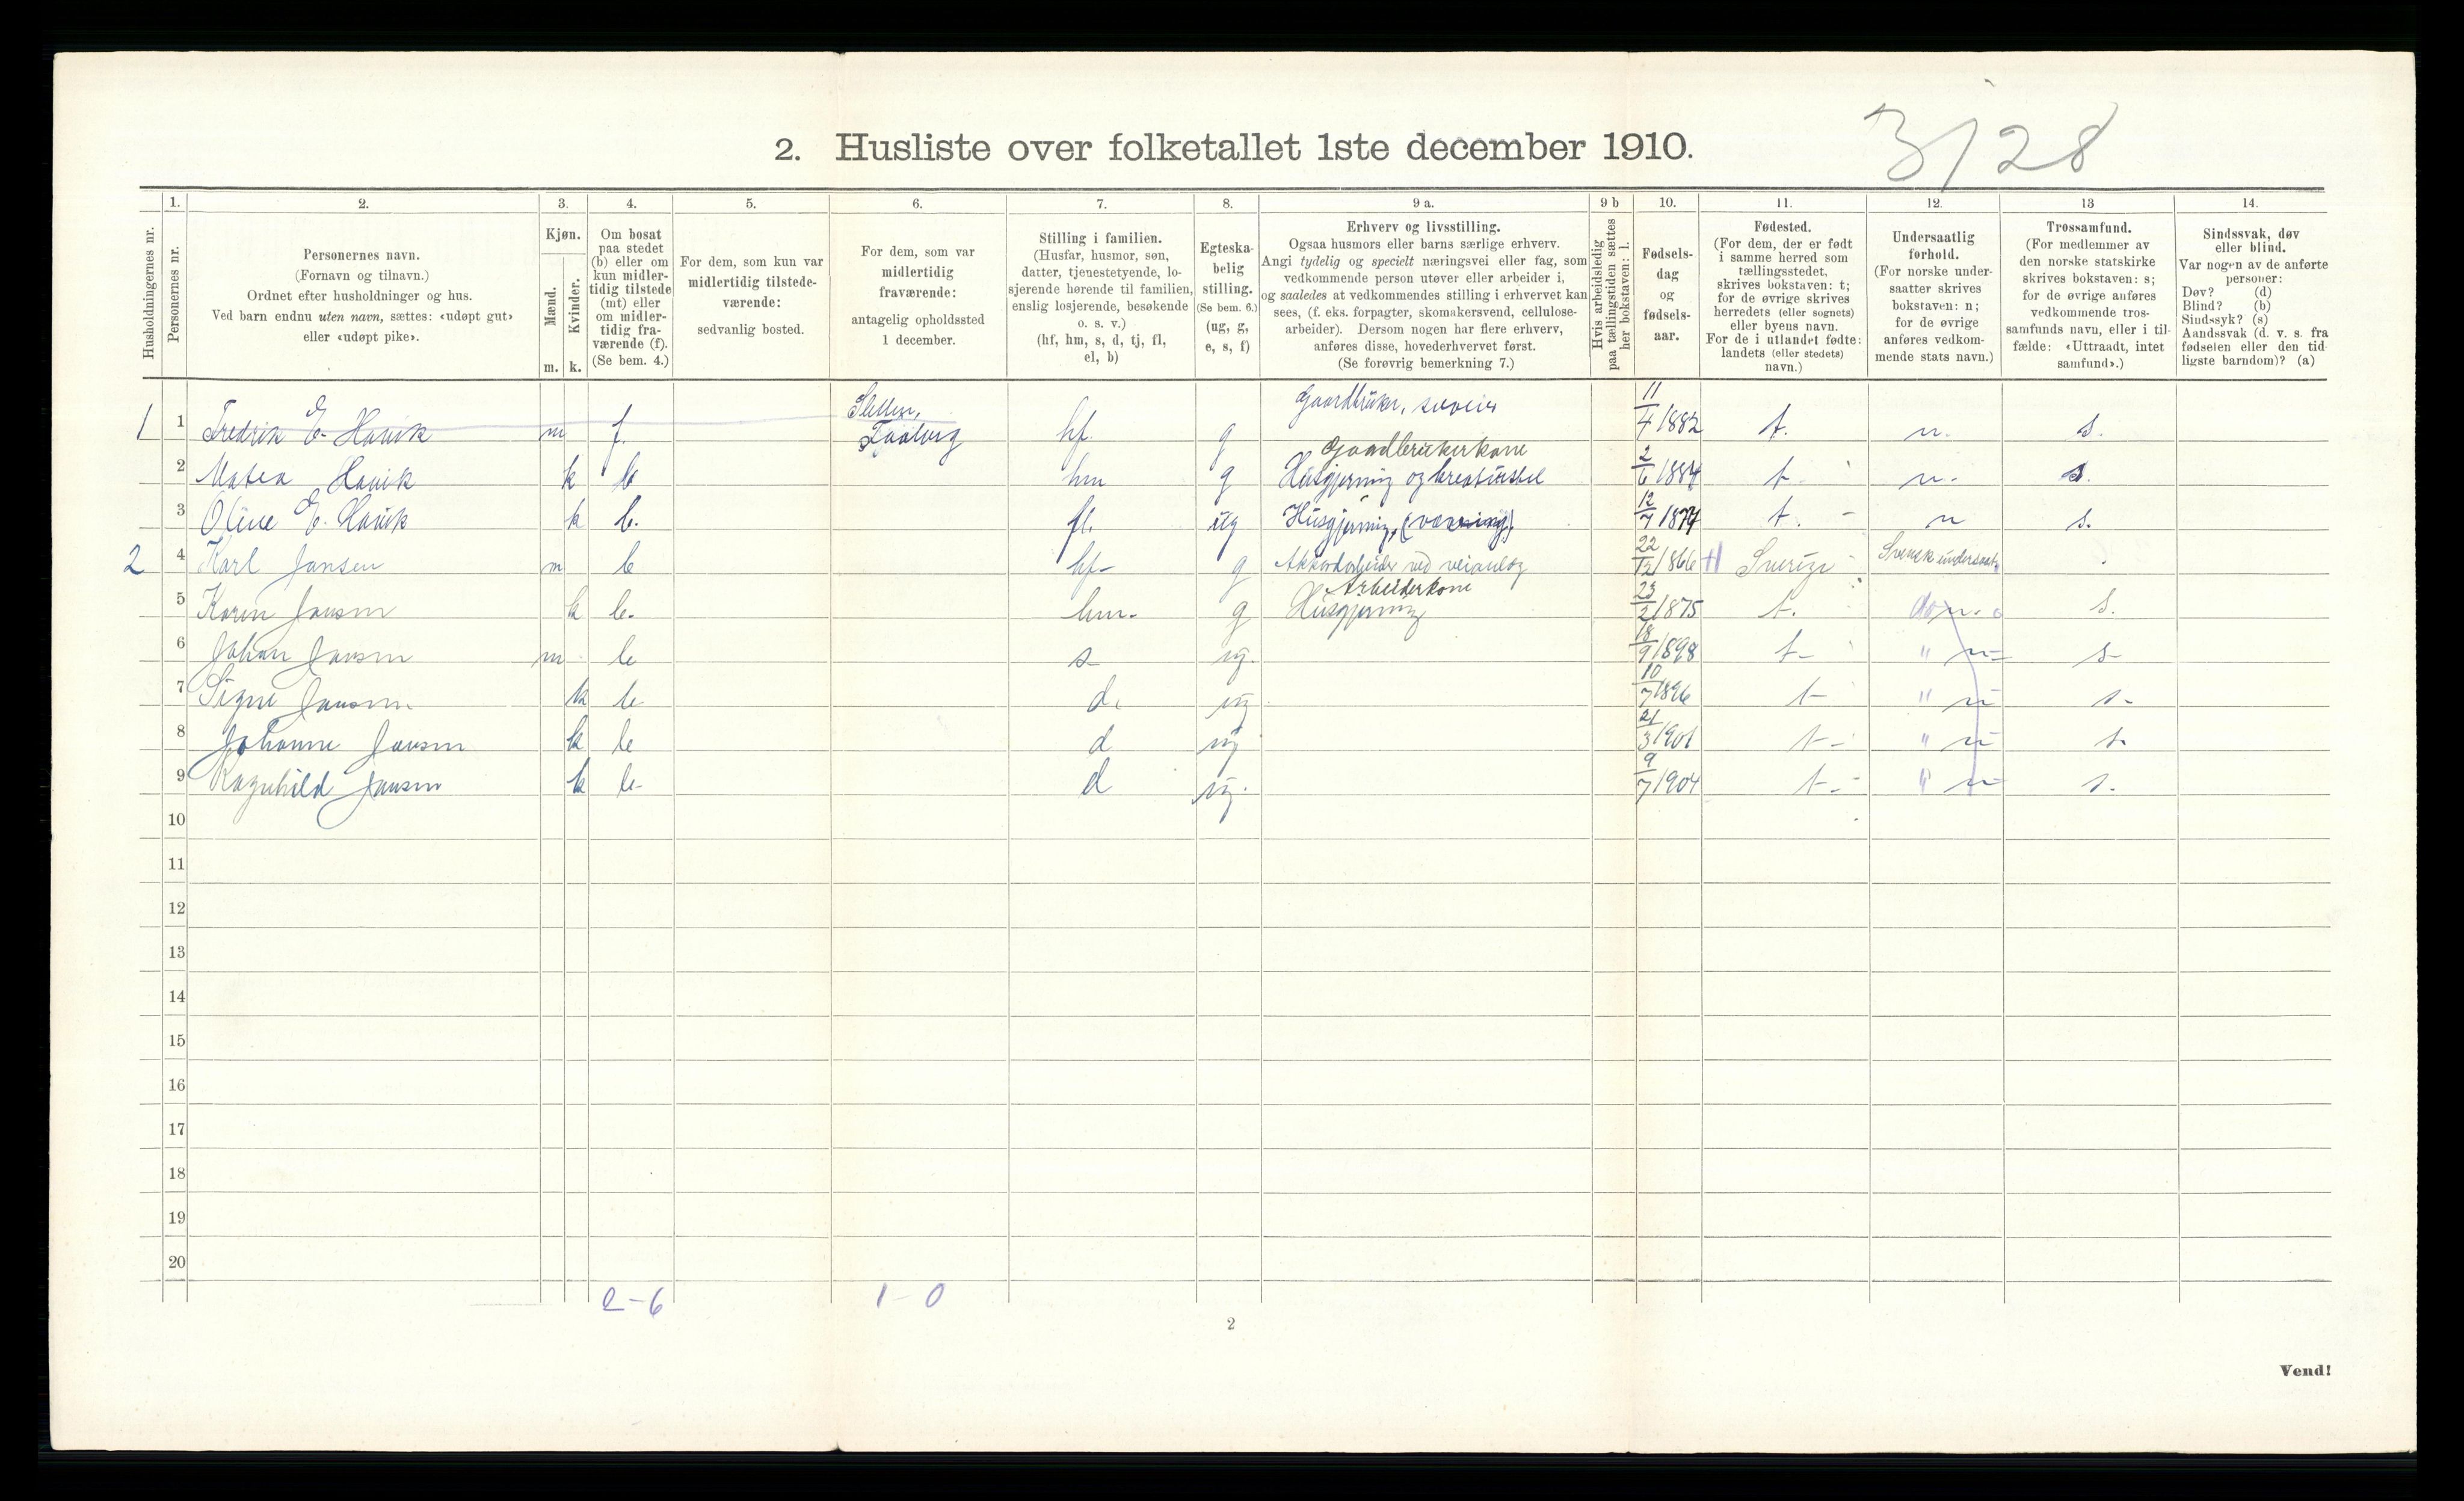 2. Husliste over folketallet 1ste december 1910.
3/28
Husholdningernes nr.
1.
Personernes nr.
2.
Personernes navn.
(Fornavn og tilnavn.)
Ordnet efter husholdninger og hus.
Ved barn endnu uten navn, sættes: «udøpt gut»
eller «udøpt pike».
3.
Kjøn.
Mænd.
Kvinder.
m. k.
4.
Om bosat
paa stedet
(b) eller om
kun midler-
tidig tilstede
(mt) eller
om midler-
tidig fra-
værende (f).
(Se bem. 4.)
5.
For dem, som kun var
midlertidig tilstede-
værende:
sedvanlig bosted.
6.
For dem, som var
midlertidig
fraværende:
antagelig opholdssted
1 december.
7.
Stilling i familien.
(Husfar, husmor, søn,
datter, tjenestetyende, lo-
sjerende hørende til familien,
enslig losjerende, besøkende
o. s. v.)
(hf, hm, s, d, tj, fl,
el, b)
8.
Egteska-
belig
stilling.
(Se bem. 6.)
(ug, g,
e, s, f)
9 a.
Erhverv og livsstilling.
Ogsaa husmors eller barns særlige erhverv.
Angi tydelig og specielt næringsvei eller fag, som
vedkommende person utøver eller arbeider i,
og saaledes at vedkommendes stilling i erhvervet kan
sees, (f. eks. forpagter, skomakersvend, cellulose-
arbeider). Dersom nogen har flere erhverv,
anføres disse, hovederhvervet først.
(Se forøvrig bemerkning 7.)
9 b
Hvis arbeidsledig
paa tællingstiden sættes
her bokstaven: l.
10.
Fødsels-
dag
og
fødsels-
aar.
11.
Fødested.
(For dem, der er født
i samme herred som
tællingsstedet,
skrives bokstaven: t;
for de øvrige skrives
herredets (eller sognets)
eller byens navn.
For de i utlandet fødte:
landets (eller stedets)
navn.)
12.
Undersaatlig
forhold.
(For norske under-
saatter skrives
bokstaven: n;
for de øvrige
anføres vedkom-
mende stats navn.)
13
Trossamfund.
(For medlemmer av
den norske statskirke
skrives bokstaven: s;
for de øvrige anføres
vedkommende tros-
samfunds navn, eller i til-
fælde: «Uttraadt, intet
samfund».)
14.
Sindssvak, døv
eller blind.
Var nogen av de anførte
personer:
Døv? (d)
Blind? (b)
Sindssyk? (s)
Aandssvak (d. v. s. fra
fødselen eller den tid-
ligste barndom)? (a)
1 1 Fredrik E. Hauik m f. Faaberg hf. g Gaardbruker, selveier 11/4 1882 t. n. s.
Gaardbrukerkone
2 Matea Hauik k b hm g Husgjerning og kreaturstel 2/6 1884 t. n. s.
3 Oline E. Hauik k b. fl. ug Husgjerning, 12/7 t. n s.
2 4 Karl Jansen m b hf- g Akkordarbeider ved veianlæg 22/12 1866 Sverige Svensk undersaat
Arbeiderkone
5 Karen Jansen k b. hm. g Husgjerning 23/2 1875 t. do n. s.
6 Johan Jansen m b s- ug. 18/9 1898 t- " n- s-
7 Signe Jansen k b d. ug 10/7 1896 t- " n s-
8 Johanne Jansen k b d ug 21/3 1901 t- " n s.
9 Ragnhild Jansen k b- d ug. 9/7 1904 t- " n s.
10
11
12
13
14
15
16
17
18
19
20
2-6 1-0
2
Vend!